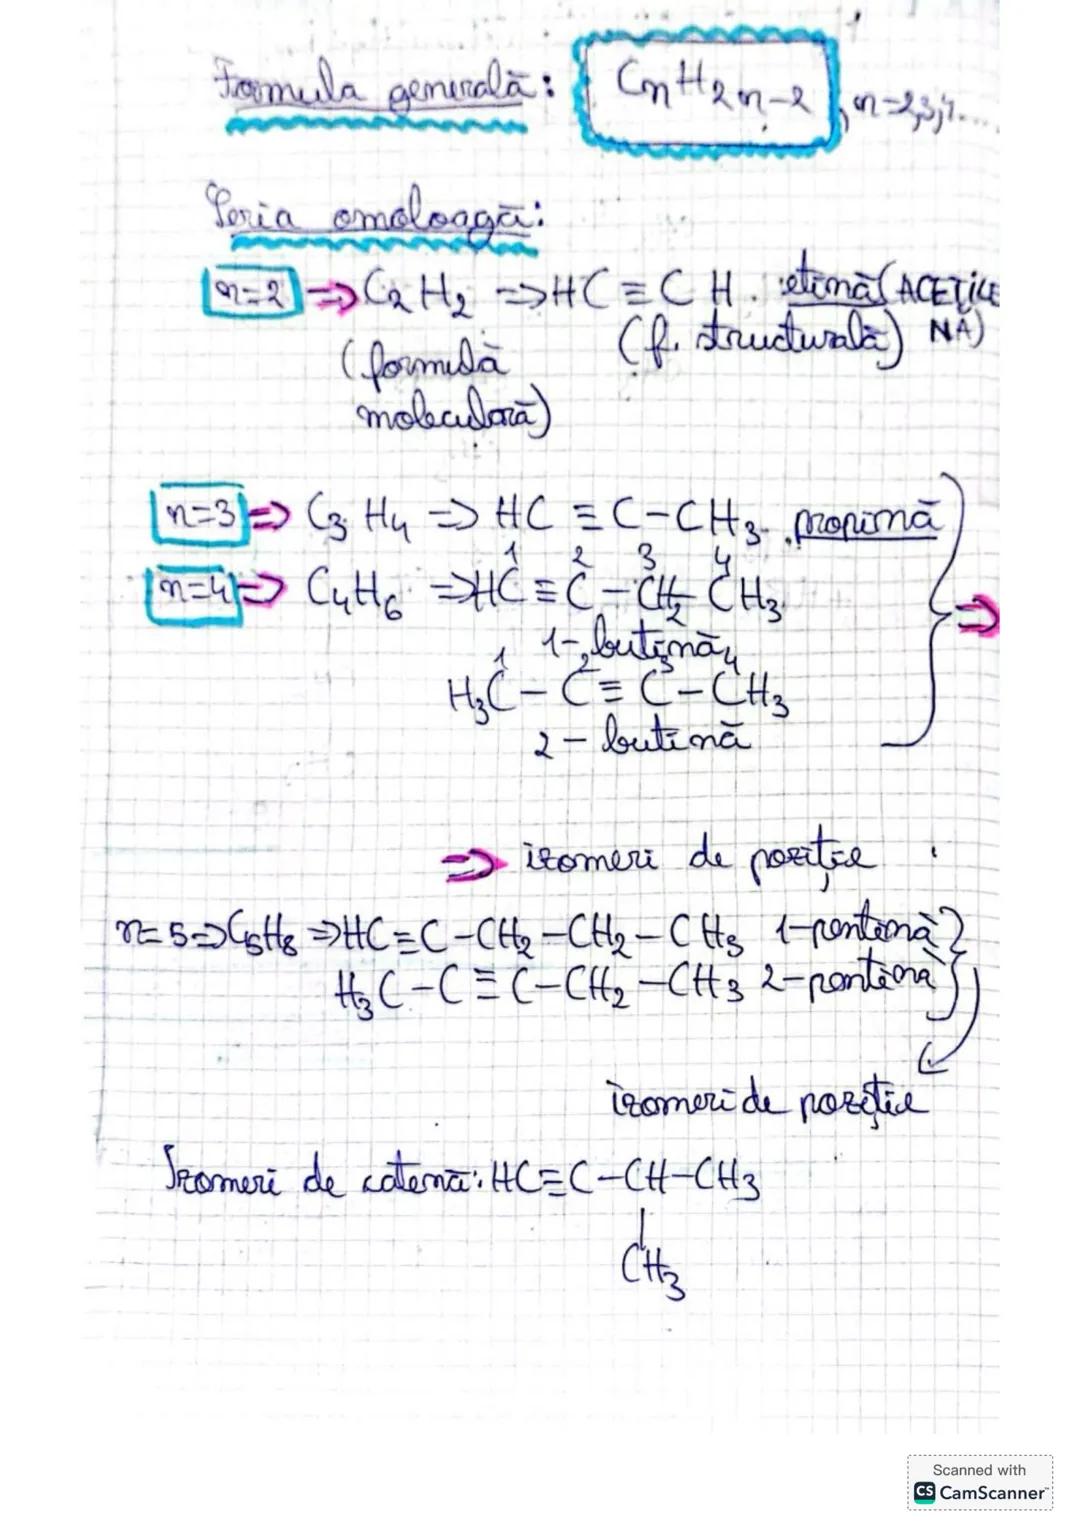 Formula generală: CnH2n-2, n=2,3,4....
Seria omoloagă:
n=2 => C2H2 => HC≡CH. etină (ACETILE
(formulă (f. structurală) NĂ)
moleculară)
n=3 => C3H4 => HC≡C-CH3. propină
1 2 3 4
n=4 => C4H6 => HC≡C-CH2-CH3
1-butină
1 2 3 4
H3C-C≡C-CH3
2-butină
=>
=> izomeri de poziție
n=5=>C5H8 =>HC≡C-CH2-CH2-CH3 1-pentină
H3C-C≡C-CH2-CH3 2-pentină
izomeri de poziție
Izomeri de catenă: HC≡C-CH-CH3
|
CH3
Scanned with
CS CamScanner